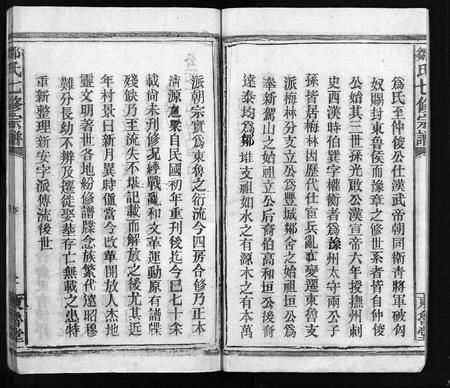 鄒氏七修宗譜
為氏至仲俊公仕漢武帝朝同衛青將軍破匈
奴賜封東魯侯而豫章之修世系者皆自仲俊
公始其三世孫光啟公漢宣帝六年授撫州刺
史西漢時伯巽字權衡者為豫州太守兩公子
孫皆居梅林因歷代仕宦兵亂音變遷東魯支
派梅林分支立公為豐城鄒舍之始祖垣公為
奉新駕山之始祖立公后裔伯高和垣公後裔
達泰均為鄒雄支祖如水之有源木之有本萬
派朝宗實為東魯之衍流今四房合修乃正本
清源之舉自民國初年重刊後迄今已七十余
載尚未刊修況經戰亂和文革運動原有譜牒
殘缺乃至流失不堪記載而解放之後尤其近
年村景日新月異時值當今改革開放人杰地
靈文明者世各地紛修譜牒念族繁代遠昭穆
難分長幼不辨及遷徙娶葬存亡無載之患特
重新整理新安字派傳流後世
鄒氏七修宗譜
東魯堂
東魯堂